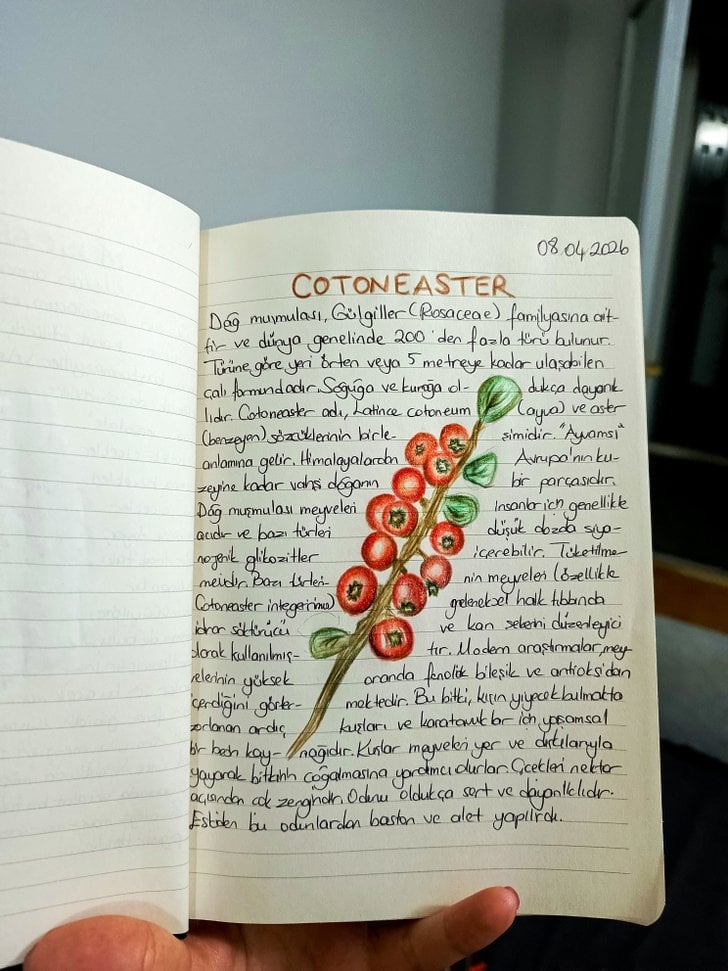 08.04.2026
COTONEASTER
Dağ muşmulası, Gülgiller (Rosaceae) familyasına ait-
tir ve dünya genelinde 200'den fazla türü bulunur.
Türüne göre yeri örten veya 5 metreye kadar ulaşabilen
çalı formundadır. Soğuğa ve kurağa ol- dukça dayanık
lıdır. Cotoneaster adı, Latince cotoneum (ayva) ve aster
(benzeyen) sözcüklerinin birle- simidir. "Ayvamsı"
anlamına gelir. Himalayalardan Avrupa'nın ku-
zeyine kadar vahşi doğanın bir parçasıdır.
Dağ muşmulası meyveleri insanlar için genellikle
acıdır ve bazı türleri düşük dozda siya-
nojenik glikozitler içerebilir. Tüketilme-
melidir. Bazı türleri- nin meyveleri (özellikle
Cotoneaster integerrimus) geleneksel halk tıbbında
idrar söktürücü ve kan şekerini düzenleyici
olarak kullanılmış- tır. Modern araştırmalar, mey-
velerinin yüksek oranda fenolik bileşik ve antioksidan
içerdiğini göster- mektedir. Bu bitki, kışın yiyecek bulmakta
zorlanan ardıç kuşları ve karatavuklar için yaşamsal
bir besin kay- nağıdır. Kuşlar meyveleri yer ve dışkılarıyla
yayarak bitkinin çoğalmasına yardımcı olurlar. Çiçekleri nektar
açısından çok zengindir. Odunu oldukça sert ve dayanıklıdır.
Eskiden bu odunlardan baston ve alet yapılırdı.